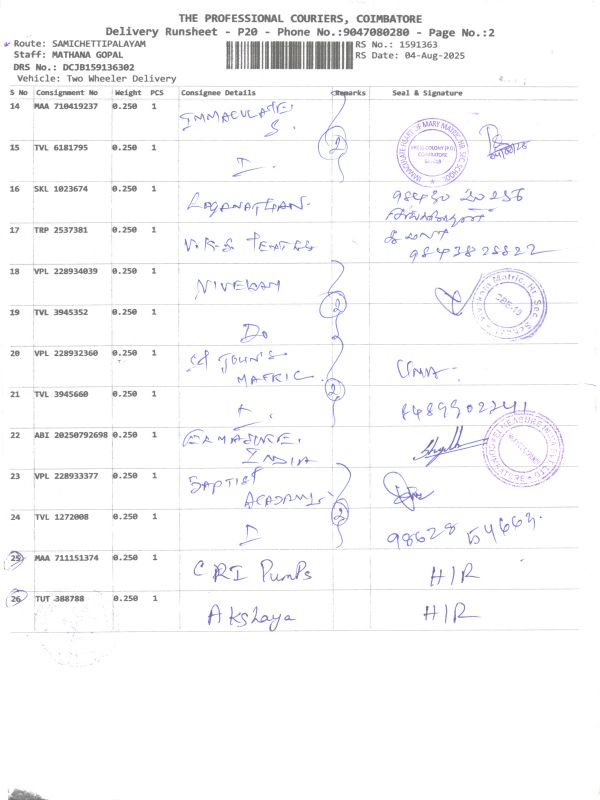 THE PROFESSIONAL COURIERS, COIMBATORE
Delivery Runsheet - P20 - Phone No.:9047080280 - Page No.:2
Route: SAMICHETTIPALAYAM RS No.: 1591363
Staff: MATHANA GOPAL RS Date: 04-Aug-2025
DRS No.: DCJB159136302
Vehicle: Two Wheeler Delivery
S No Consignment No Weight PCS Consignee Details Remarks Seal & Signature
14 MAA 710419237 0.250 1 IMMACULATE.
S. 2
15 TVL 6181795 0.250 1
16 SKL 1023674 0.250 1 LOGANATHAN.
17 TRP 2537381 0.250 1 V.K.S
9843828822
18 VPL 228934039 0.250 1 NIVEDAM
2
19 TVL 3945352 0.250 1 Do
20 VPL 228932360 0.250 1 JOHN'S
MATRIC. UMA.
2
21 TVL 3945660 0.250 1
22 ABI 20250792698 0.250 1
INDIA
23 VPL 228933377 0.250 1 BAPTIST
ACADEMY.
2
24 TVL 1272008 0.250 1 98628 54663.
25 MAA 711151374 0.250 1 CRI Pumps H/R
26 TUT 388788 0.250 1 Akshaya H/R